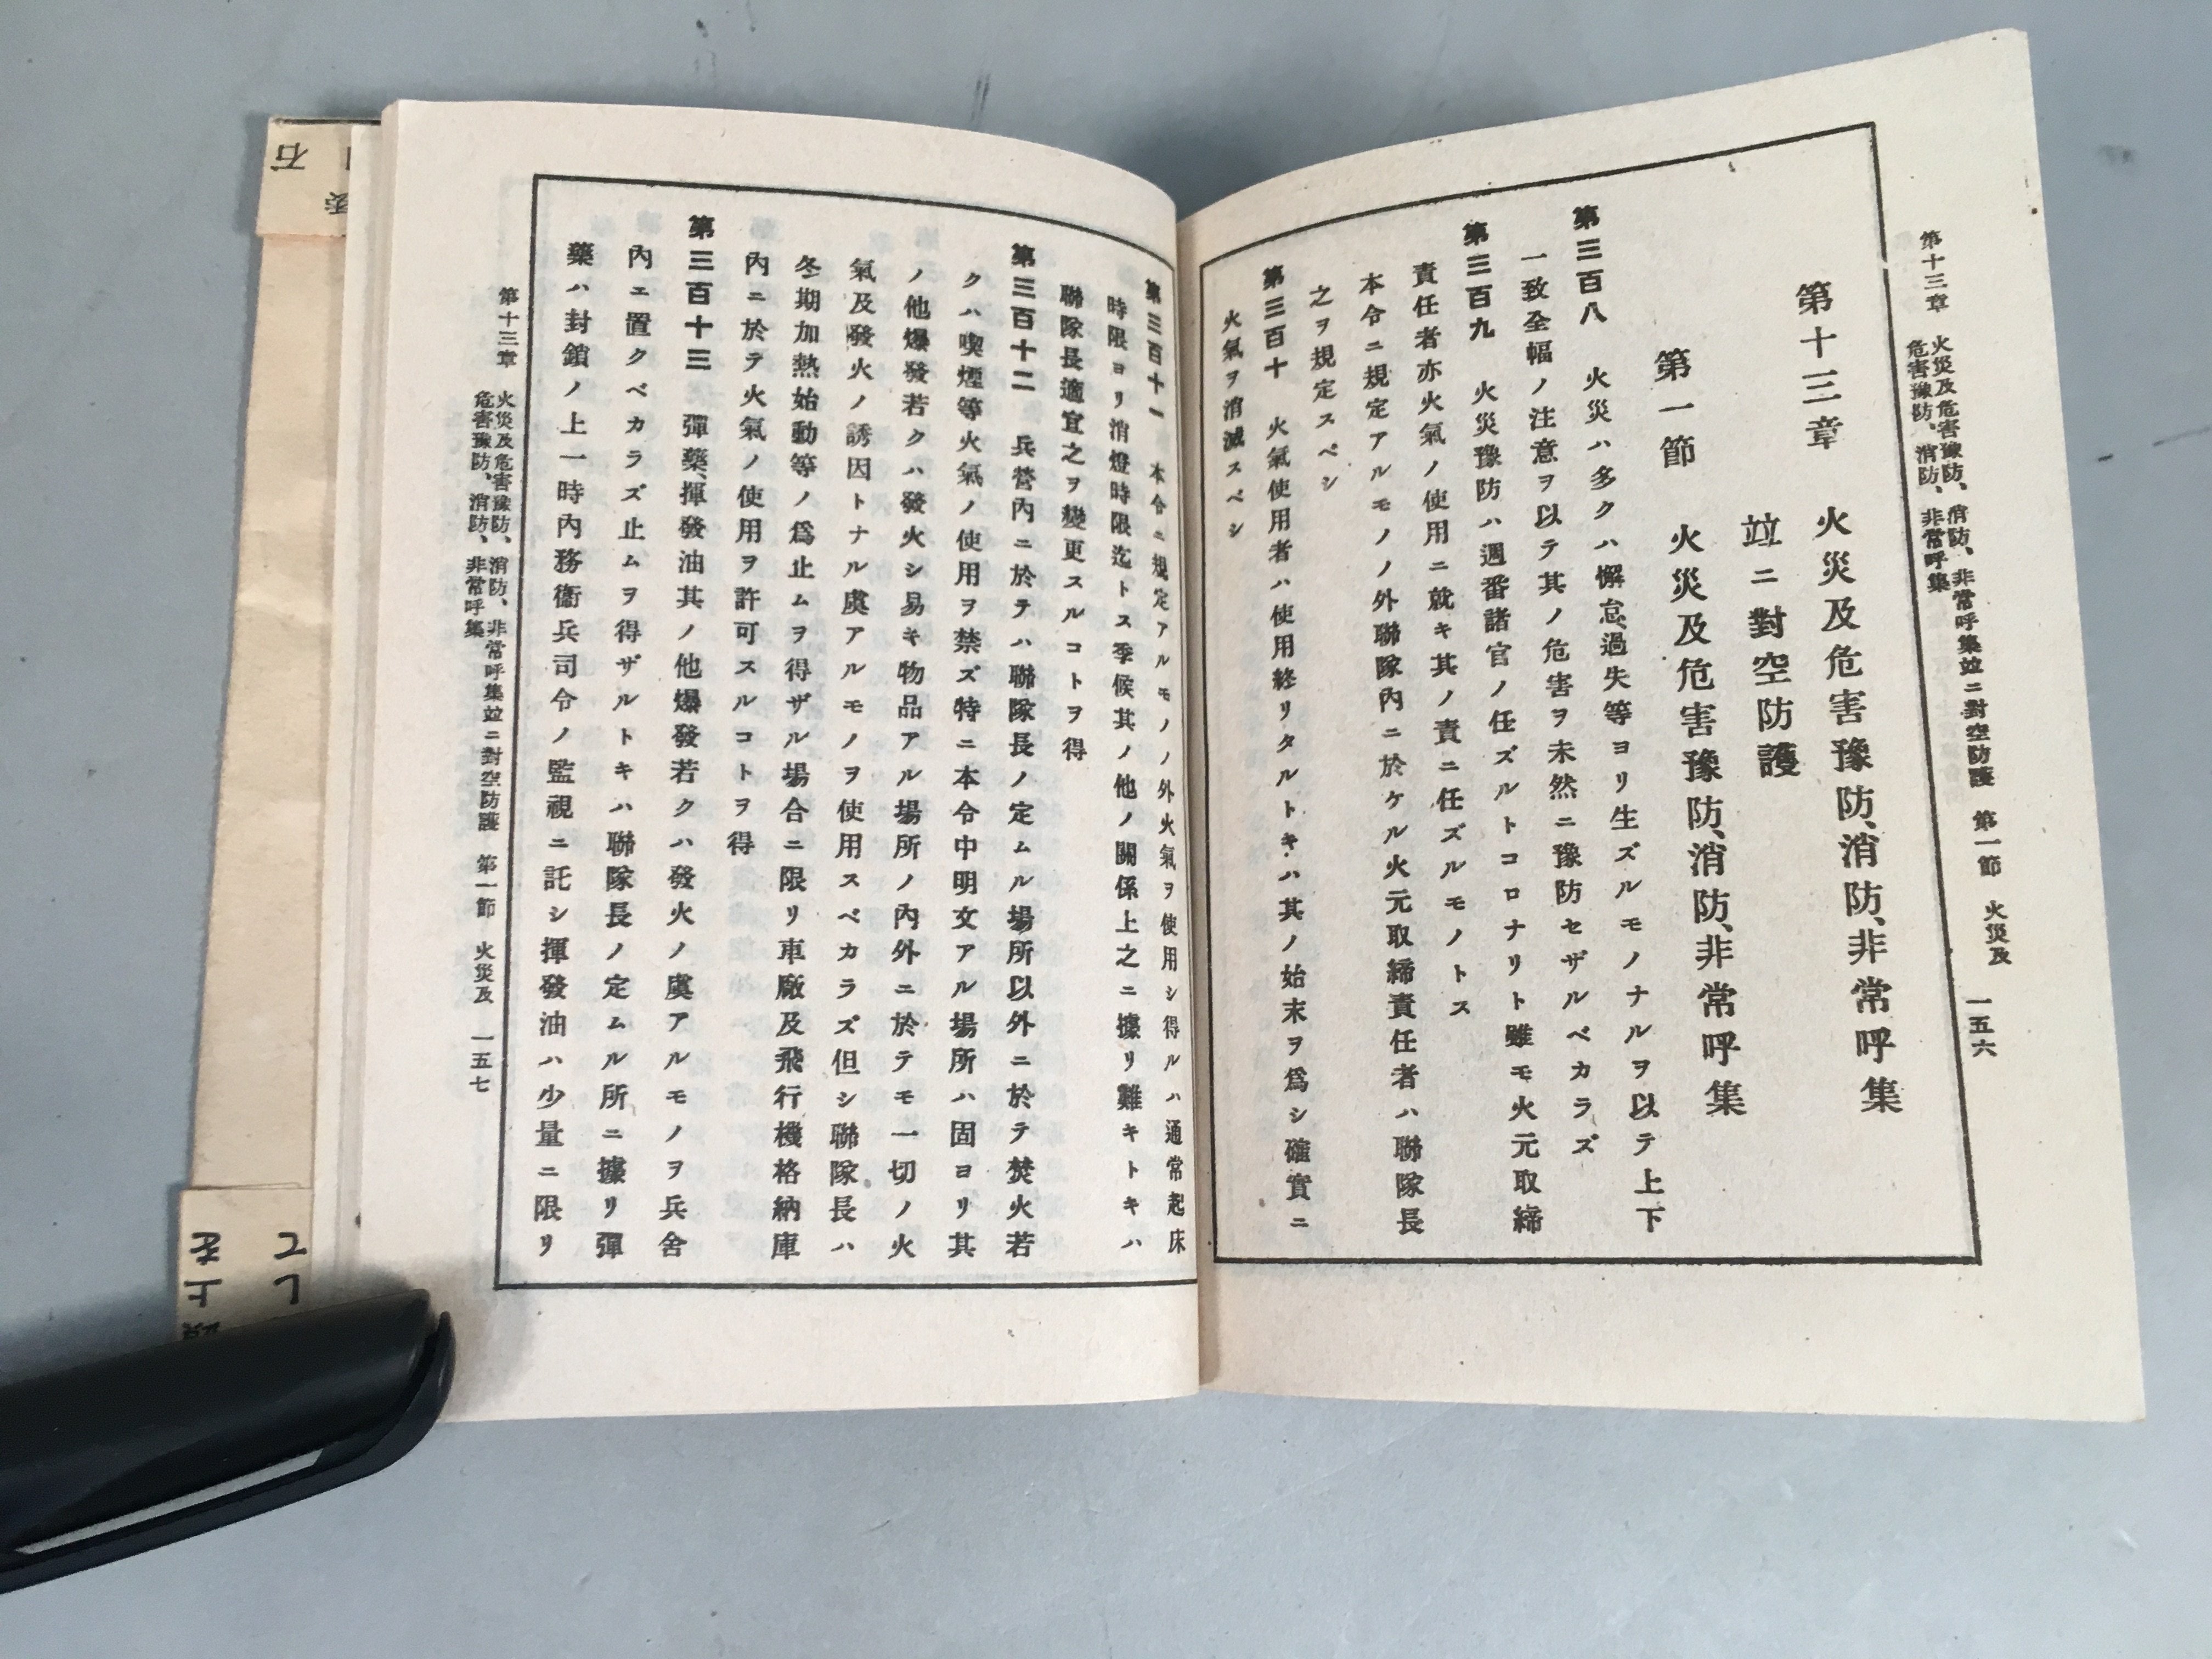 第十三章 火災及危害豫防、消防、非常呼集竝ニ對空防護 第一節 火災及
危害豫防、消防、非常呼集
一五六
第十三章 火災及危害豫防、消防、非常呼集
竝ニ對空防護
第一節 火災及危害豫防、消防、非常呼集
第三百八 火災ハ多クハ懈怠、過失等ヨリ生ズルモノナルヲ以テ上下
一致全幅ノ注意ヲ以テ其ノ危害ヲ未然ニ豫防セザルベカラズ
第三百九 火災豫防ハ週番諸官ノ任ズルトコロナリト雖モ火元取締
責任者亦火氣ノ使用ニ就キ其ノ責ニ任ズルモノトス
本令ニ規定アルモノノ外聯隊內ニ於ケル火元取締責任者ハ聯隊長
之ヲ規定スベシ
第三百十 火氣使用者ハ使用終リタルトキハ其ノ始末ヲ爲シ確實ニ
火氣ヲ消滅スベシ
第三百十一 本令ニ規定アルモノノ外火氣ヲ使用シ得ルハ通常起床
時限ヨリ消燈時限迄トス季候其ノ他ノ關係上之ニ據リ難キトキハ
聯隊長適宜之ヲ變更スルコトヲ得
第三百十二 兵營內ニ於テハ聯隊長ノ定ムル場所以外ニ於テ焚火若
クハ喫煙等火氣ノ使用ヲ禁ズ特ニ本令中明文アル場所ハ固ヨリ其
ノ他爆發若クハ發火シ易キ物品アル場所ノ內外ニ於テモ一切ノ火
氣及發火ノ誘因トナル虞アルモノヲ使用スベカラズ但シ聯隊長ハ
冬期加熱始動等ノ爲止ムヲ得ザル場合ニ限リ車廠及飛行機格納庫
內ニ於テ火氣ノ使用ヲ許可スルコトヲ得
第三百十三 彈藥、揮發油其ノ他爆發若クハ發火ノ虞アルモノヲ兵舍
內ニ置クベカラズ止ムヲ得ザルトキハ聯隊長ノ定ムル所ニ據リ彈
藥ハ封鎖ノ上一時內務衞兵司令ノ監視ニ託シ揮發油ハ少量ニ限リ
第十三章 火災及危害豫防、消防、非常呼集竝ニ對空防護 第一節 火災及
危害豫防、消防、非常呼集
一五七